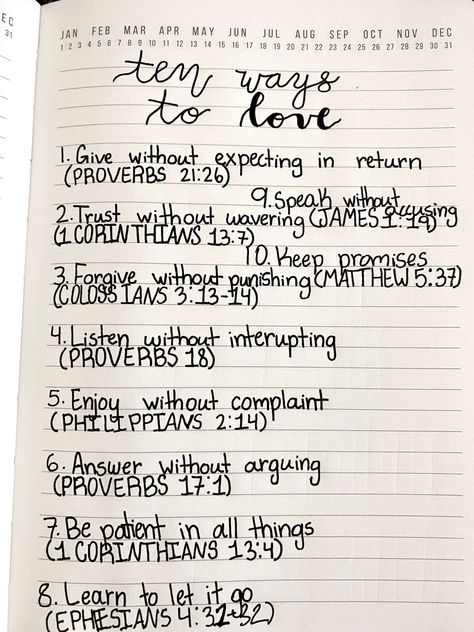 EC
31
JAN FEB MAR APR MAY JUN JUL AUG SEP OCT NOV DEC
1 2 3 4 5 6 7 8 9 10 11 12 13 14 15 16 17 18 19 20 21 22 23 24 25 26 27 28 29 30 31
ten ways
to love
1. Give without expecting in return
(PROVERBS 21:26)
2. Trust without wavering
(1 CORINTHIANS 13:7)
3. Forgive without punishing
(COLOSSIANS 3:13-14)
4. Listen without interupting
(PROVERBS 18)
5. Enjoy without complaint
(PHILIPPIANS 2:14)
6. Answer without arguing
(PROVERBS 17:1)
7. Be patient in all things
(1 CORINTHIANS 13:4)
8. Learn to let it go
(EPHESIANS 4:31-32)
9. Speak without accusing
(JAMES 1:19)
10. Keep promises
(MATTHEW 5:37)